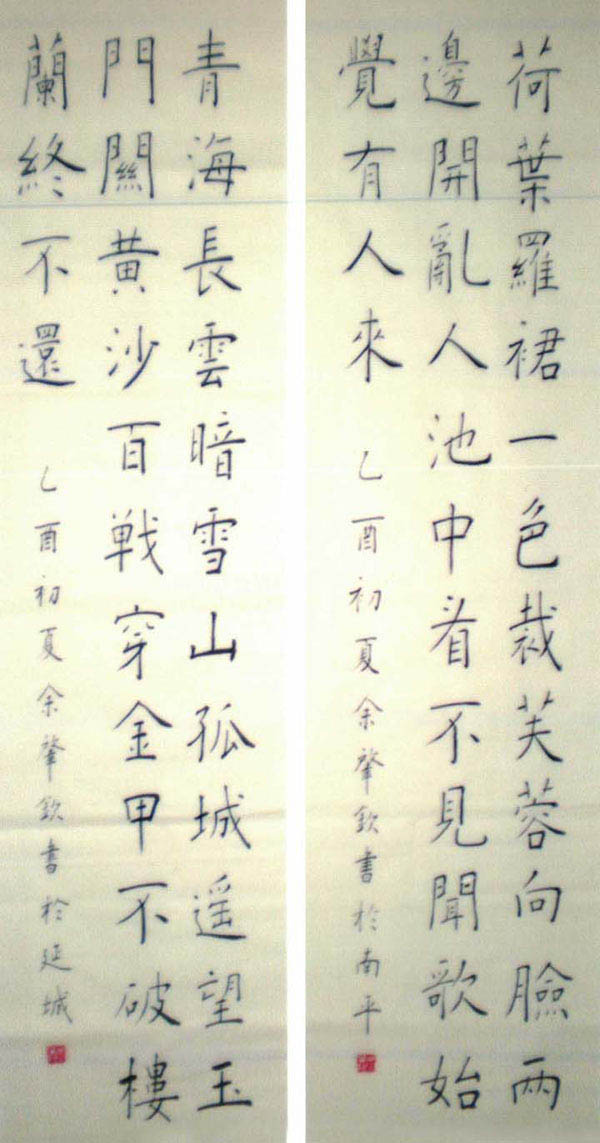 荷葉羅裙一色裁芙蓉向臉兩
邊開亂人池中看不見聞歌始
覺有人來
乙酉初夏余肇欽書於南平
青海長雲暗雪山孤城遥望玉
門關黄沙百戦穿金甲不破樓
蘭終不還
乙酉初夏余肇欽書於延城